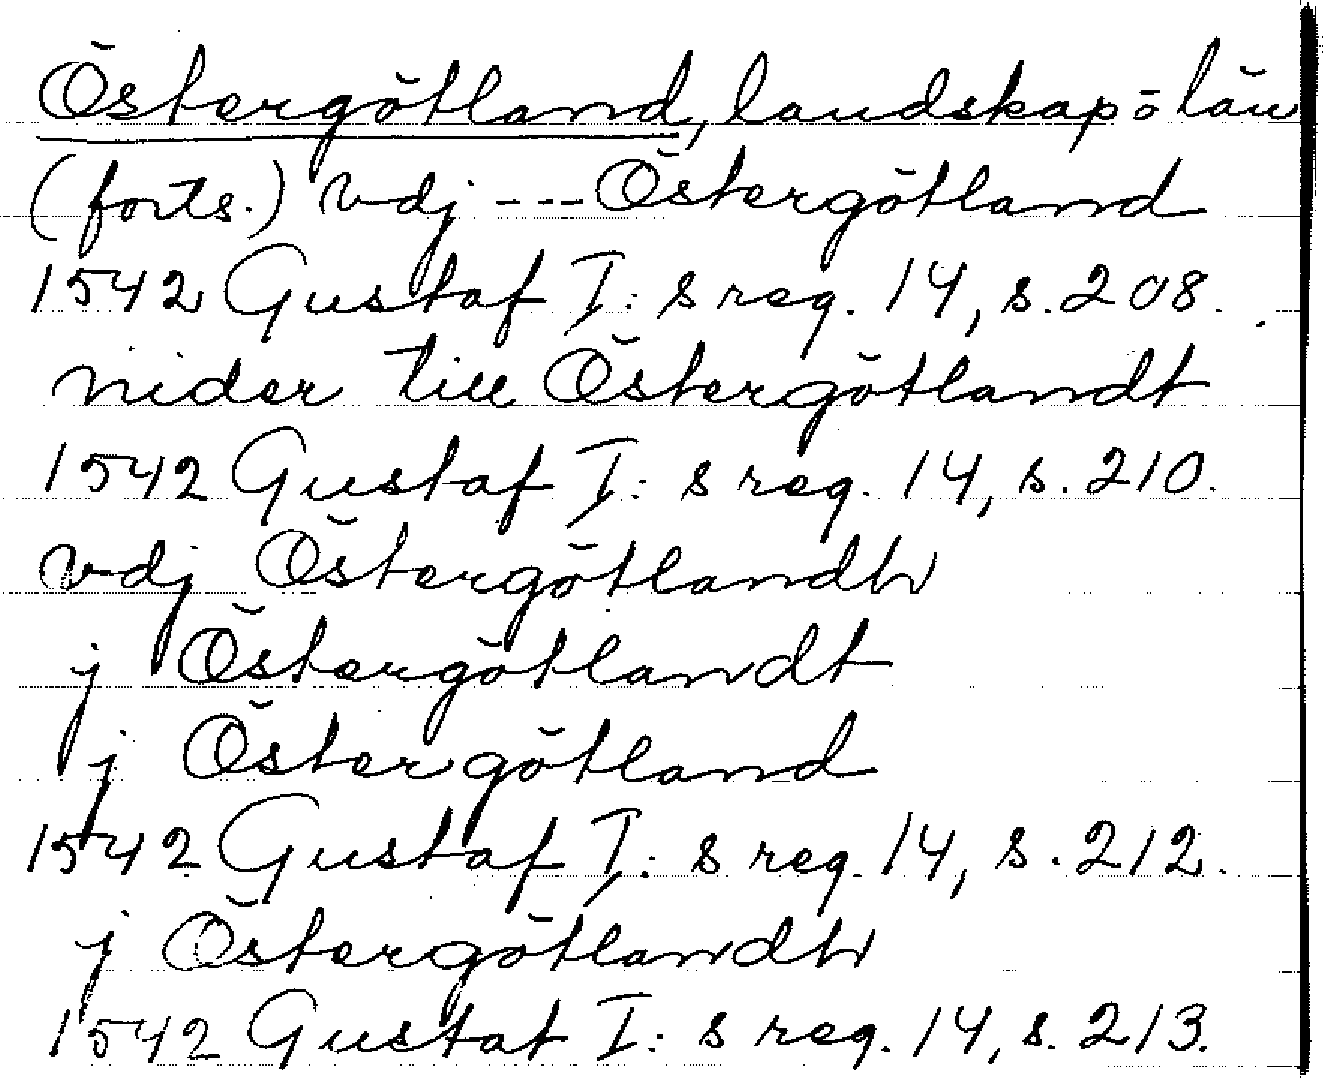 Östergötland, landskap o län
(forts.) vdj --- Östergötland
1542 Gustaf I: s reg. 14, s. 208.
nider till Östergötlandt
1542 Gustaf I: s reg. 14, s. 210.
vdj Östergötlandh
j Östergötlandt
j Östergötland
1542 Gustaf I: s reg. 14, s. 212.
j Östergötlandh
1542 Gustaf I: s reg. 14, s. 213.